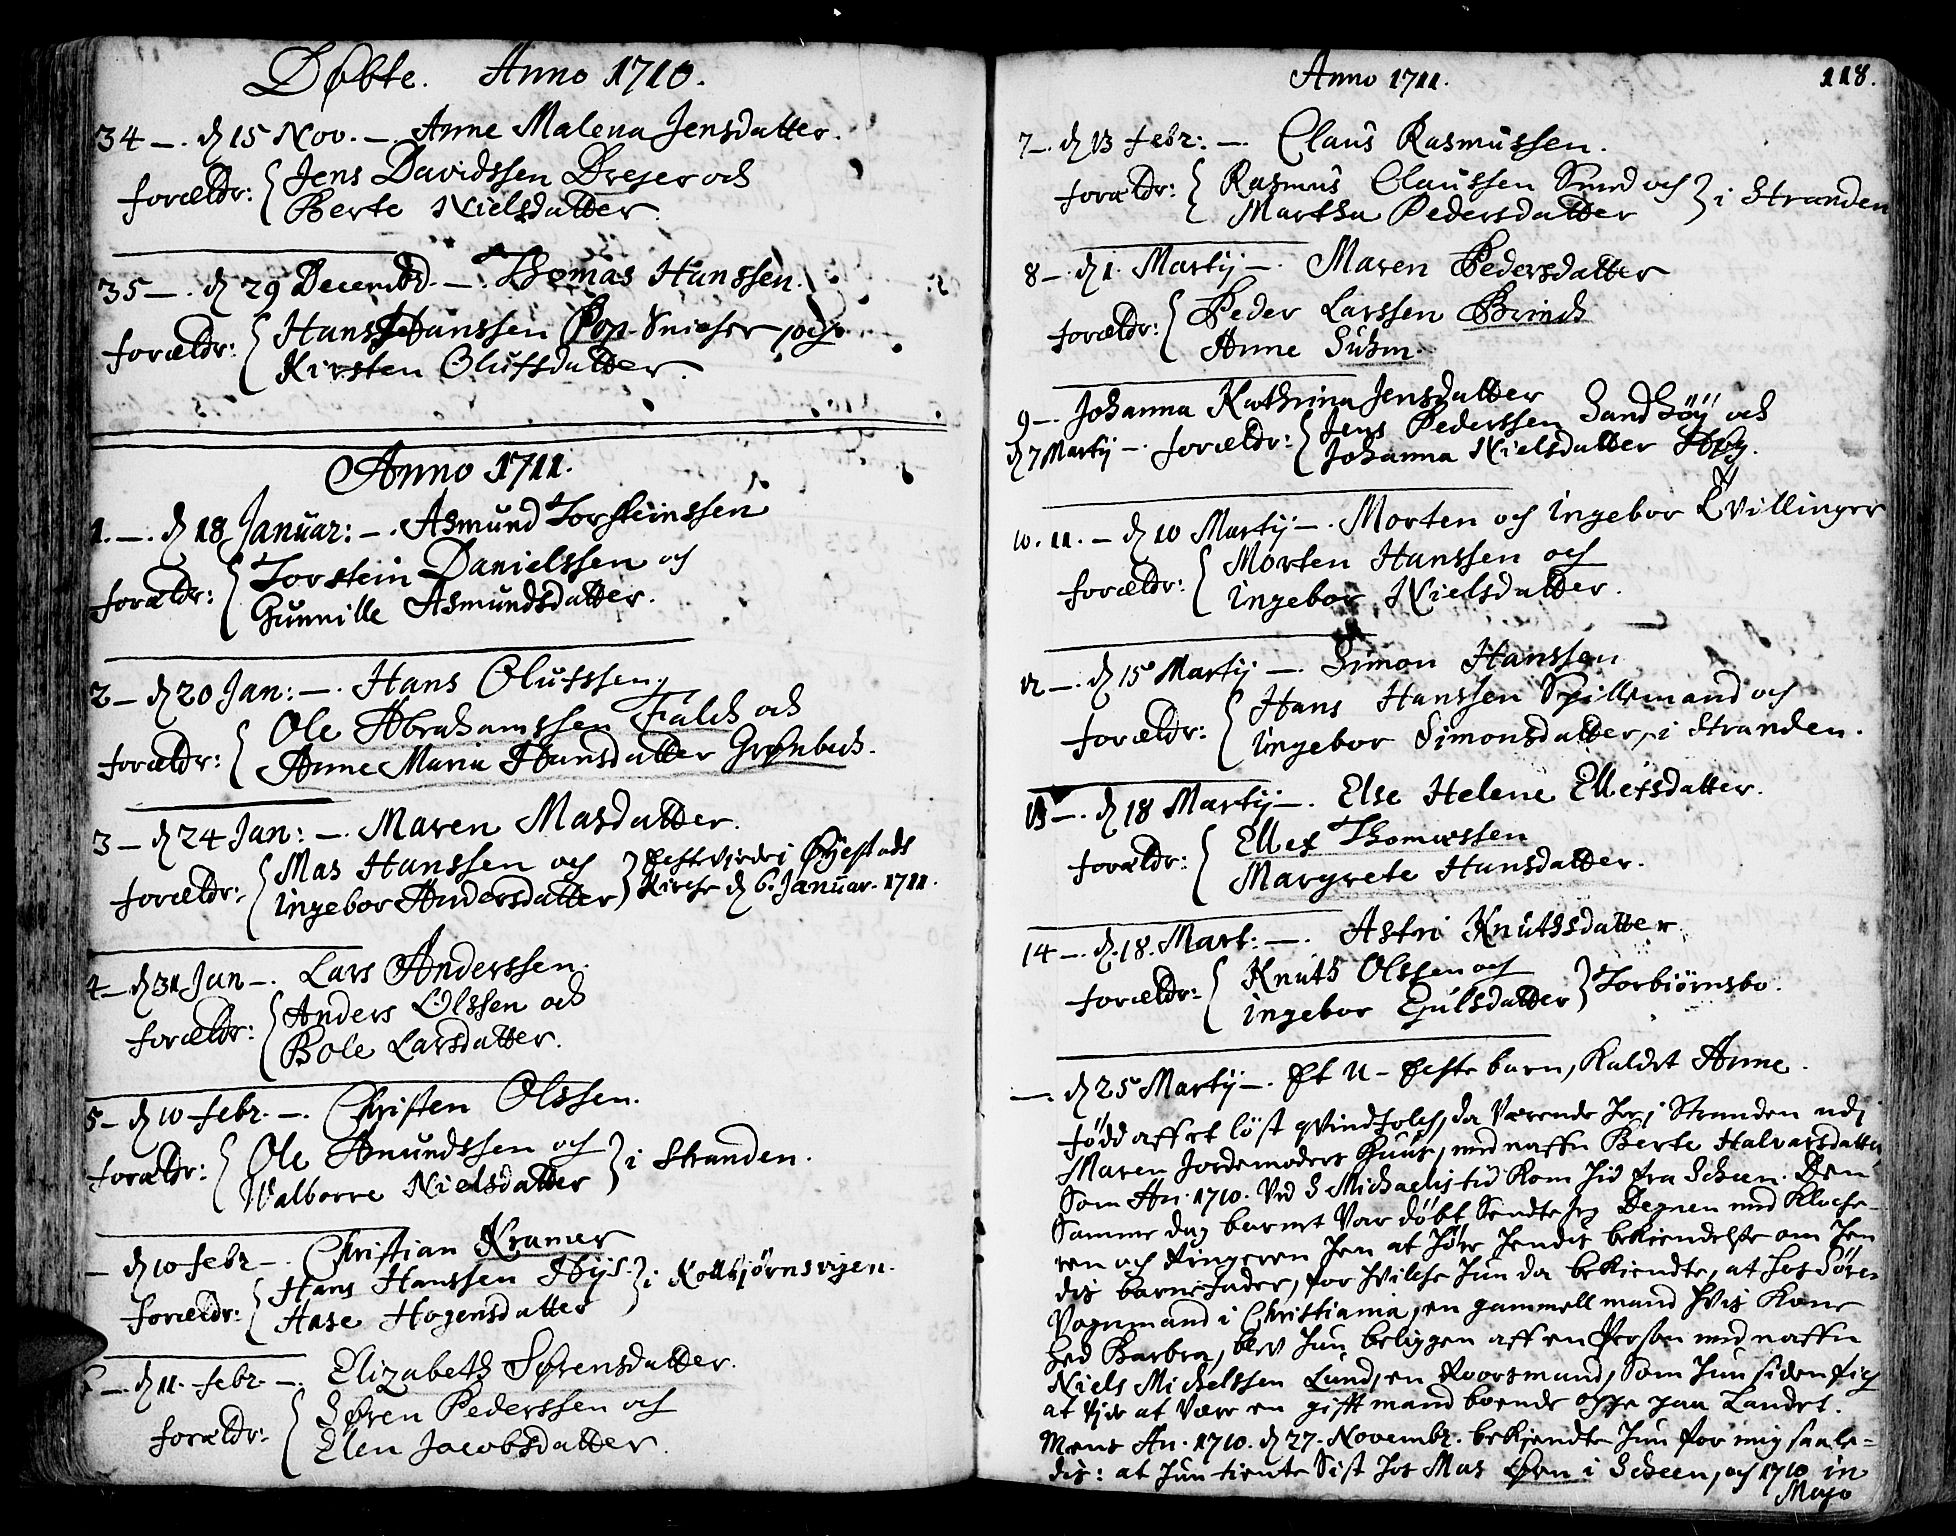 Døbte. Anno 1710.
34 –. d 15 Nov. –. Anne Malena Jensdatter.
forældr: Jens Davidssen Drejer och
Berte Nielsdatter.
35 –. d 29 Decembr. –. Thomas Hanssen.
forældr: Hans Hanssen Pop Snicker, och
Kirsten Olufsdatter.
Anno 1711.
1. –. d 18 Januar: –. Asmund Torsteinssen
forældr: Torstein Danielssen och
Gunnille Asmundsdatter.
2 – d 20 Jan: –. Hans Olufssen.
forældr: Ole Abrahamssen Falch och
Anne Maria Hansdatter Grønbech.
3 – d 24 Jan: –. Maren Masdatter.
forældr: Mas Hanssen och
Ingebor Andersdatter Echtviede i Øyestads
Kirche d 6. Januar. 1711.
4 – d 31 Jan –. Lars Anderssen.
forældr: Anders Olssen och
Bole Larsdatter.
5 – d 10 febr. –. Christen Olssen.
forældr: Ole Amundssen och
Walborre Nielsdatter i Stranden.
– d 10 febr –. Christian Kramer
forældr: Hans Hanssen Thijs
Hase Hogensdatter i Kolbjørnsvigen.
–. d 11. febr. –. Elizabeth Sørensdatter.
forældr: Søren Pederssen och
Elen Jacobsdatter.
Anno 1711. 118.
7 –. d 13 febr: –. Claus Rasmussen.
forældr: Rasmus Claussen Smed och
Martha Pedersdatter i Stranden
8 –. d 1. Martij –. Maren Pedersdatter
forældr: Peder Larssen Brinch
Anne Suhm.
9 –. Johanna Kathrina Jensdatter
d 7 Martij –. forældr: Jens Pederssen Sandhøÿ och
Johanna Nielsdatter
10. 11. – d 10 Martij –. Morten och Ingebor Tvillinger
forældr: Morten Hanssen och
Ingebor Nielsdatter.
12 –. d 15 Martij –. Simon Hanssen
forældr: Hans Hanssen Spillemand och
Ingebor Simonsdatter, i Stranden.
13 –. d 18 Martij –. Else Helene Ellefsdatter.
forældr: Ellef Thomassen
Margrete Hansdatter.
14 –. d. 18. Mart: –. Astri Knuthsdatter
forældr: Knuth Olssen och
Ingebor Egulsdatter Torbiørnsbo.
–. d 25 Martij –. Et U-Echte barn, Kaldet Anne.
fødd aff et løst qvindfolch, da Værende her i Stranden udi
Maren Jordemoders Huus, med naffn Berte Halvarsdatter
Som An. 1710. Ved S Michaelis tid Kom hid fra Scheen. Den
Samme dag barnet Var døbt Sendte jeg Degnen med Klocke-
ren och Ringeren hen at høre hendis bekiendelse om hen
dis barnefader, for hvilche hun da bekiendte, at hos Søre
Vognmand i Christiania, en gammell mand hvis Kone
hed Barbra, blev hun beliggen aff en Person med naffn
Niels Michelssen Lund, en Roorsmand, Som hun siden fich
at vide at Være en gifft mand boende oppe paa Landet.
Mens An. 1710. d 27. Novembr. bekjendte hun for mig saale=
dis: at hun tiente Sist hos Mas i Scheen, och 1710 in
Majo